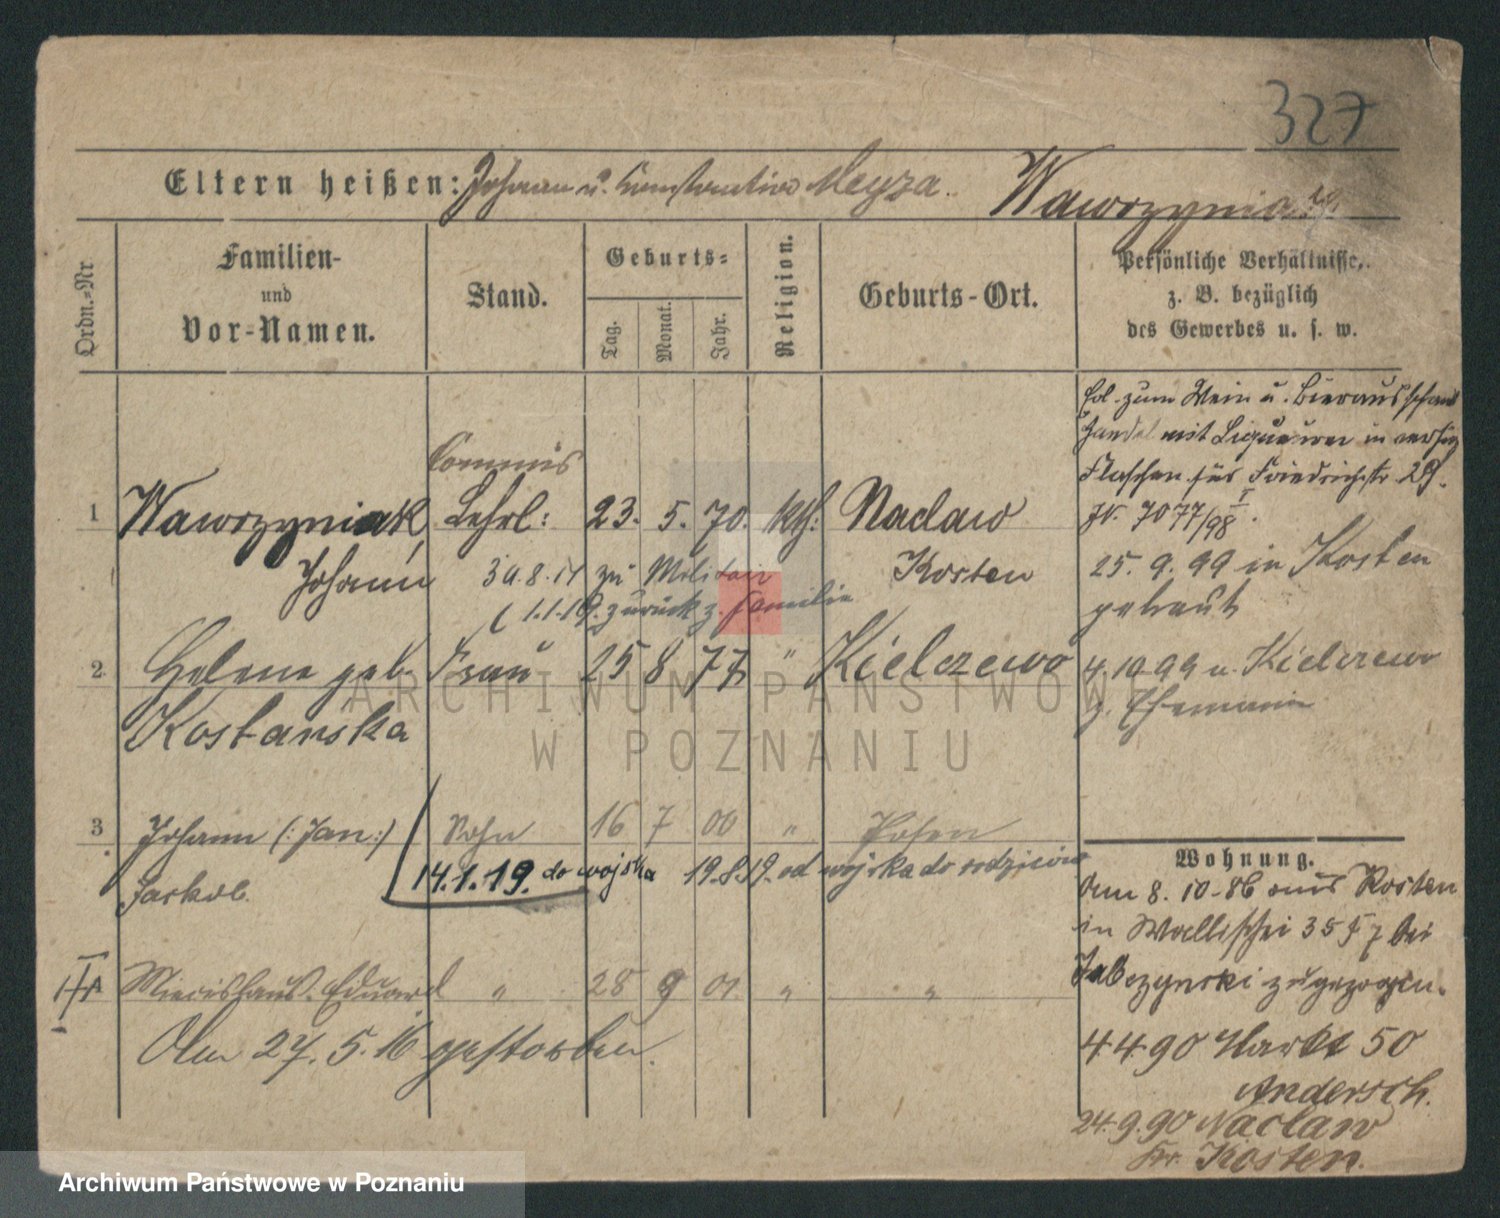 327
Eltern heißen: Johann u. Konstantine Meyza. Wawrzyniak
Ordn.-Nr
Familien-
und
Vor-Namen.
Stand.
Geburts-
Tag.
Monat.
Jahr.
Religion.
Geburts-Ort.
Persönliche Verhältnisse,
z. B. bezüglich
des Gewerbes u. s. w.
zum Wein u. Bierausschank
Handel mit Liqueuren in
Flaschen für Friedrichstr 28.
7077/98
Commis
1 Wawrzyniak, Lehrl: 23. 5. 70. kth: Naclaw
Johann Kosten
zu Militair
1.1.19. zurück z. Familie
25. 9. 99 in Kosten
getraut
2. Helene geb. Frau 25 8 77 " Kielczewo
Kostanska
4.10 99 u. Kielczewo
z. Ehemann
3 Johann (: Jan :) Sohn 16 7 00 " Posen
Jaskob.
14.1.19. do wojska 19.8.19. od wojska do rodziców
Eduard " 28 9 01 " "
Am 27. 5. 16 gestorben.
Wohnung.
Am 8. 10. 86 aus Kosten
in Wallischei 35 bei
zugezogen.
4 4 90 Markt 50
Andersch.
24. 9. 90 Naclaw
Kr. Kosten.
ARCHIWUM PAŃSTWOWE
W POZNANIU
Archiwum Państwowe w Poznaniu